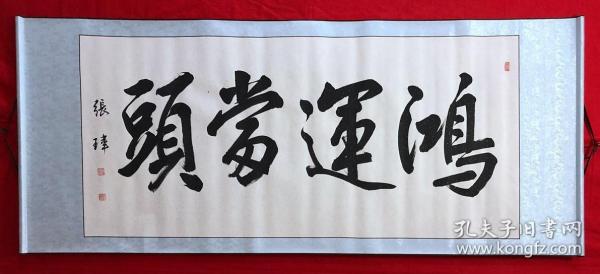 鴻運當頭
張瑋
孔夫子旧书网
www.kongfz.com